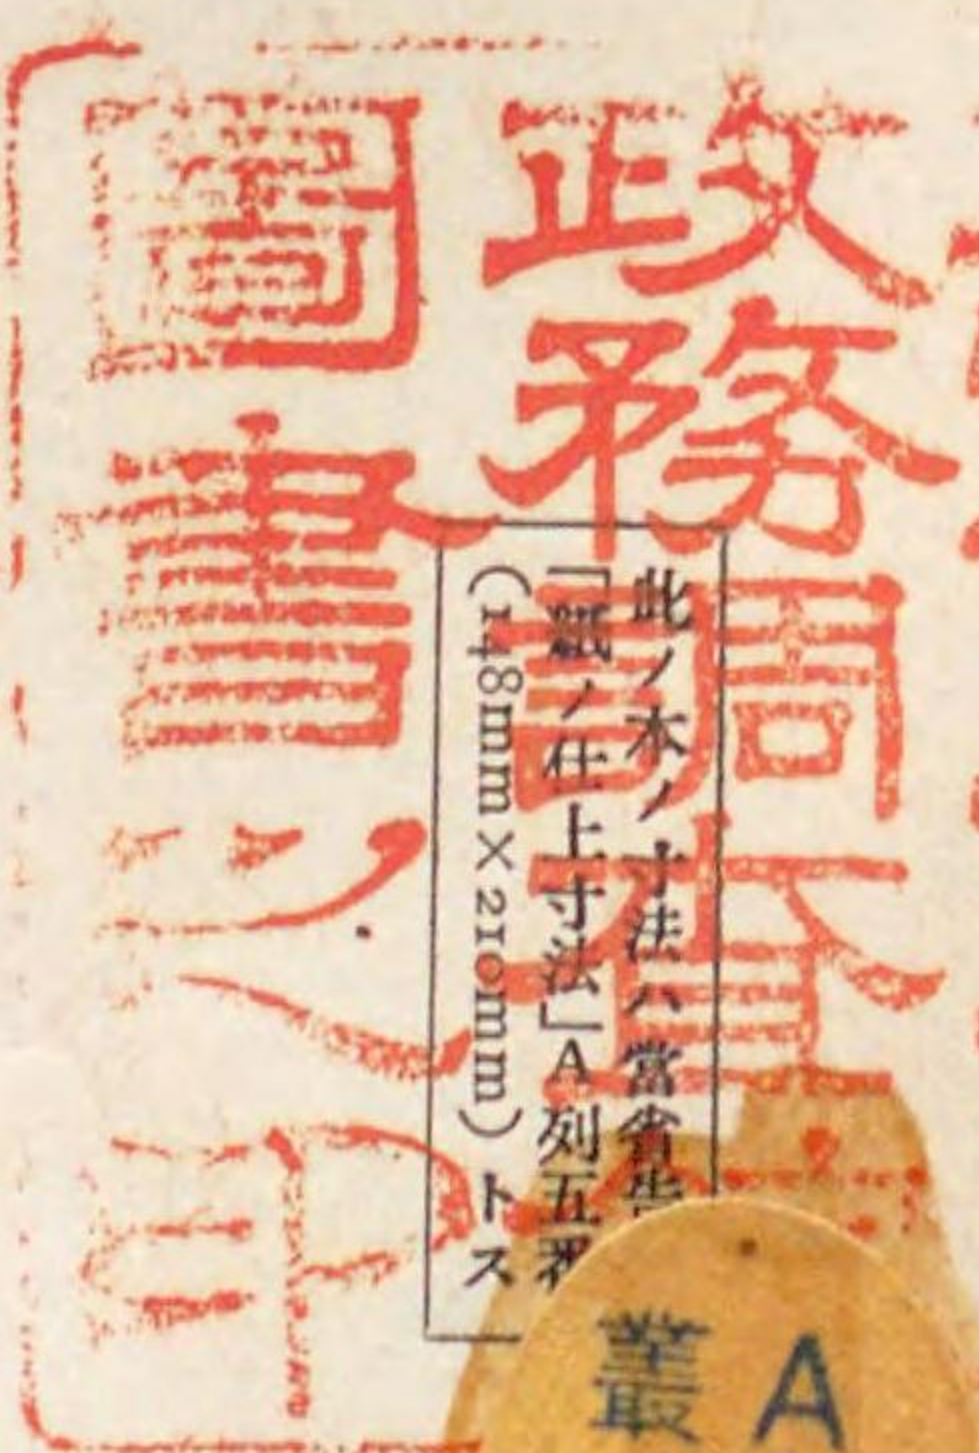 政務調査
圖書之印
此ノ本ノ寸法ハ當省告
「紙ノ仕上寸法」A列五
(148mm×210mm)トス
叢 A